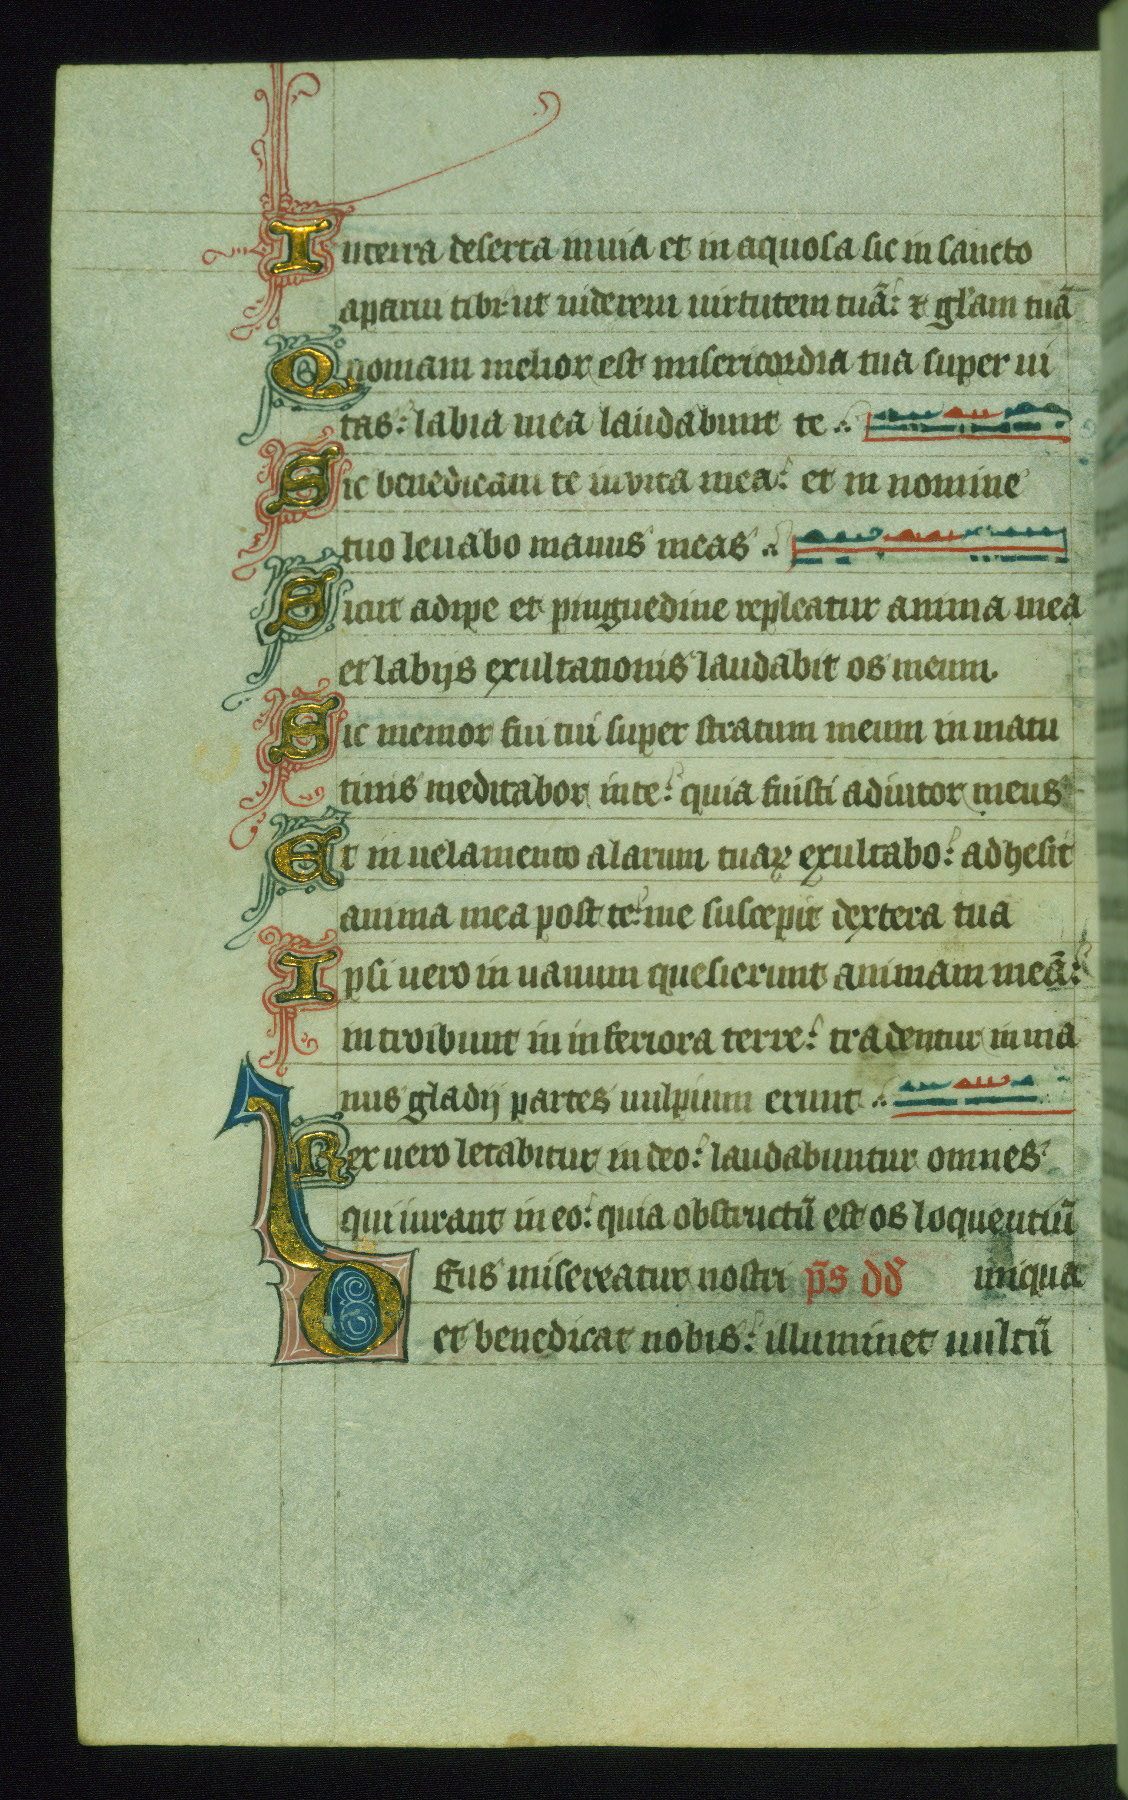 In terra deserta inuia et in aquosa sic in sancto
aparui tibi ut uiderem uirtutem tuā: ⁊ gl'am tuā
Quoniam melior est misericordia tua super ui
tas: labia mea laudabunt te
Sic benedicam te in vita mea: et in nomine
tuo leuabo manus meas
Sicut adipe et pinguedine repleatur anima mea
et labijs exultationis laudabit os meum.
Sic memor fui tui super stratum meum in matu
tinis meditabor in te: quia fuisti adiutor meus
Et in uelamento alarum tuaꝝ exultabo: adhesit
anima mea post te: me suscepit dextera tua
Ipsi uero in uanum quesierunt animam meā:
introibunt in inferiora terre: tradentur in ma
nus gladij partes uulpium erunt
Rex uero letabitur in deo: laudabuntur omnes
qui iurant in eo: quia obstructū est os loquentiū
Deus misereatur nostri p̄s dd iniqua
et benedicat nobis: illuminet uultū